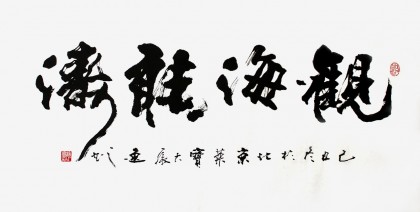 觀海聽濤
己丑冬於北京榮寶大